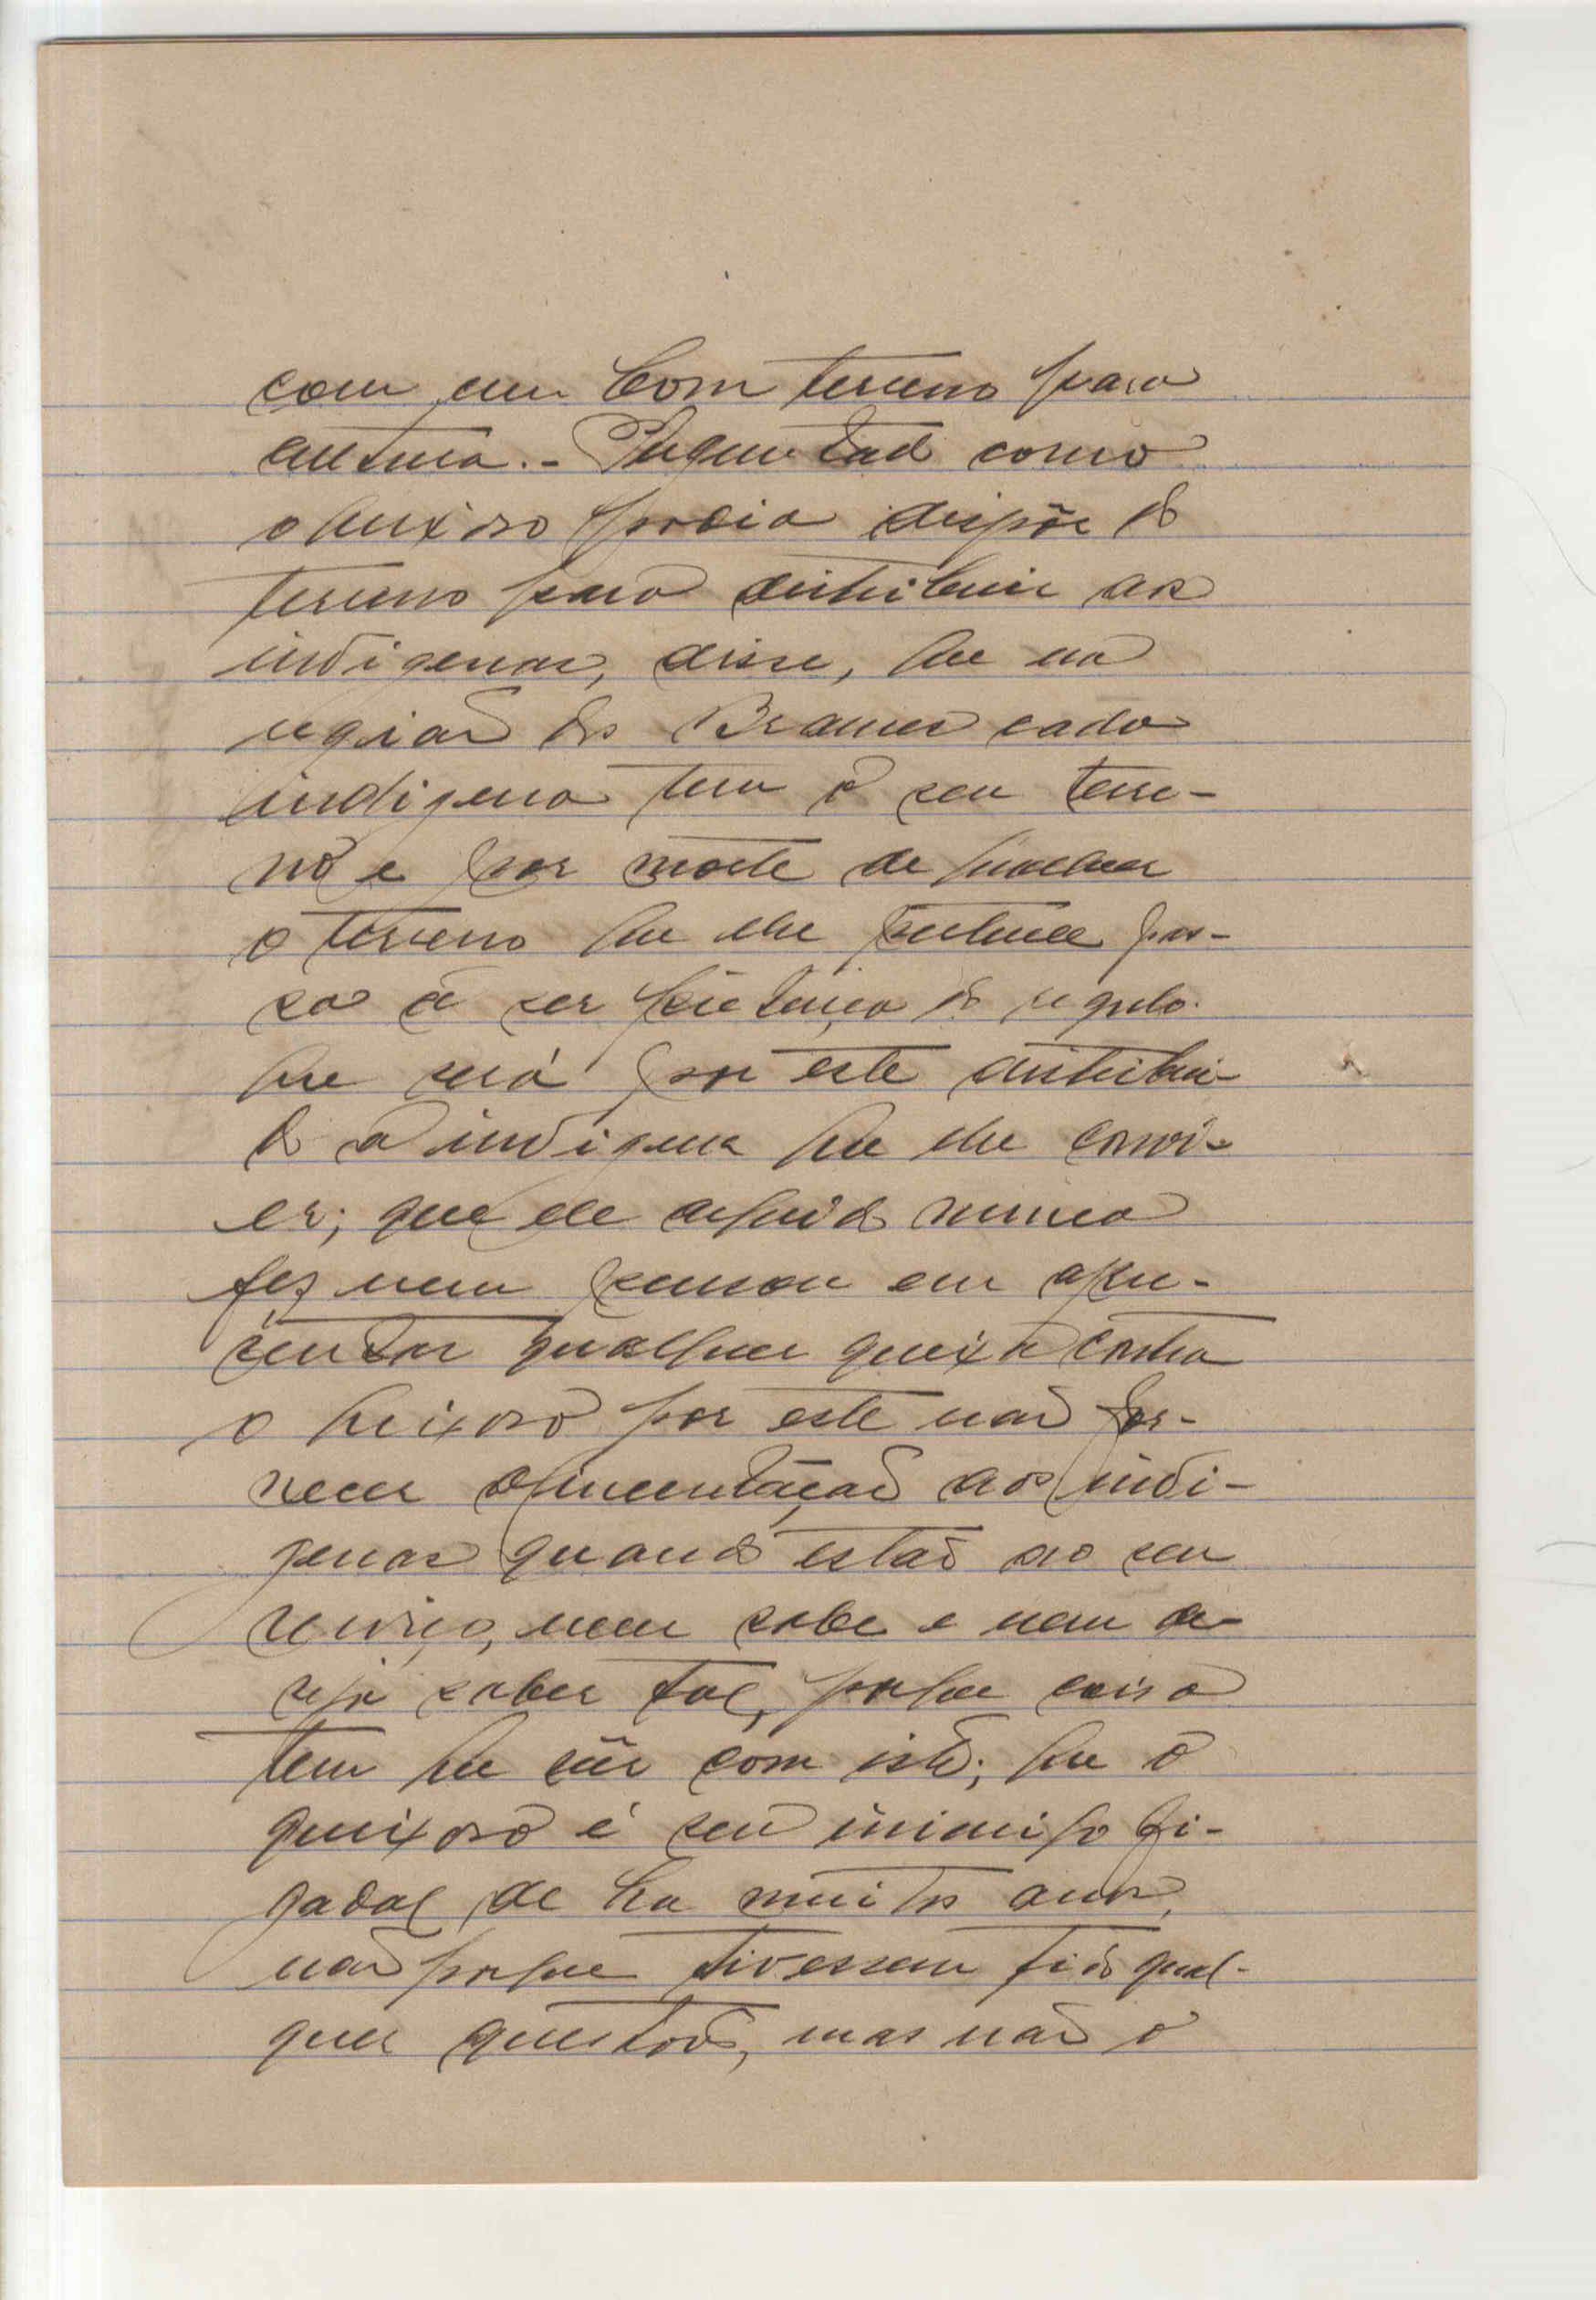 com um bom terreno para
cultura. - Preguntado como
o queixoso podia dispôr do
terreno para distribuir aos
indigenas, disse, que na
região dos Brames cada
indigena tem o seu terre-
no e por morte de qualquer
o terreno que lhe pertence pas-
sa a ser pertença do regulo
que será por este distribui-
do a indigena que lhe convi-
er; que ele arguido nunca
fez nem pensou em apre-
sentar qualquer queixa contra
o queixoso por este não for-
necer alimentação aos indi-
genas quando estão ao seu
serviço, nem sabe e nem de-
seja saber tal, porque coisa
tem que vêr com isto; que o
queixoso é seu inimigo fi-
gadal de ha muitos anos,
não porque tivessem tido qual-
quer questão, mas não o